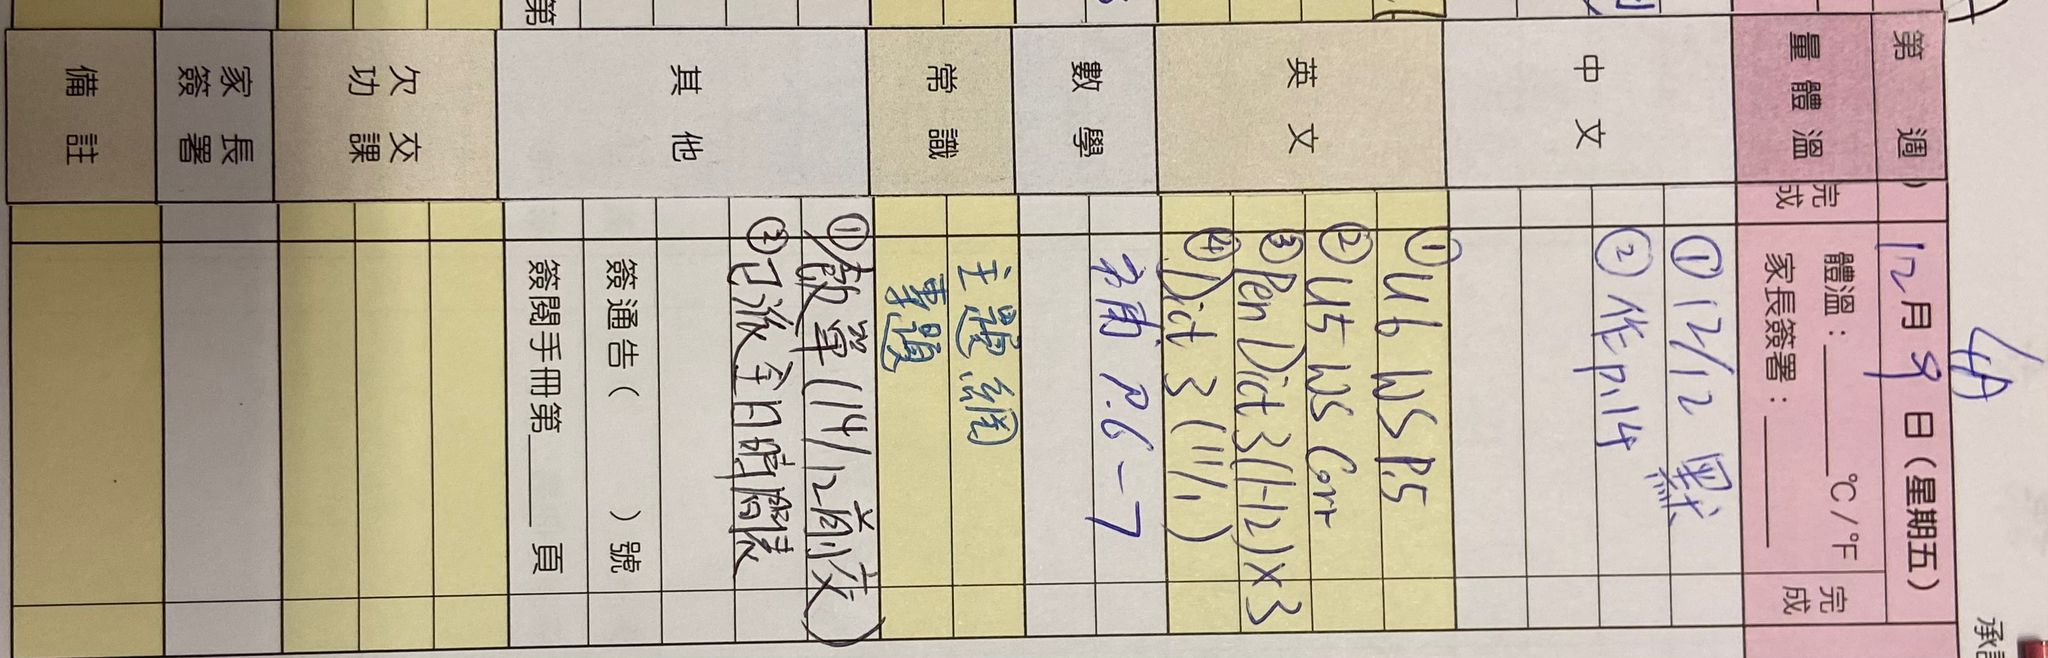 4A
第 週
12月9日(星期五)
量體溫
完成
體溫：______°C/°F
家長簽署：______
完成
中文
① 12/12 默
② 作 p.14
英文
① U6 WS P.5
② U5 WS Corr
③ Pen Dict 3 (1-12) x 3
④ Dict 3 (11/1)
數學
補 P.6-7
常識
主題網
事題
其他
① 飯單 (14/12前交)
② 已派全日時間表
簽通告( )號
簽閱手冊第____頁
欠交功課
家長簽署
備註